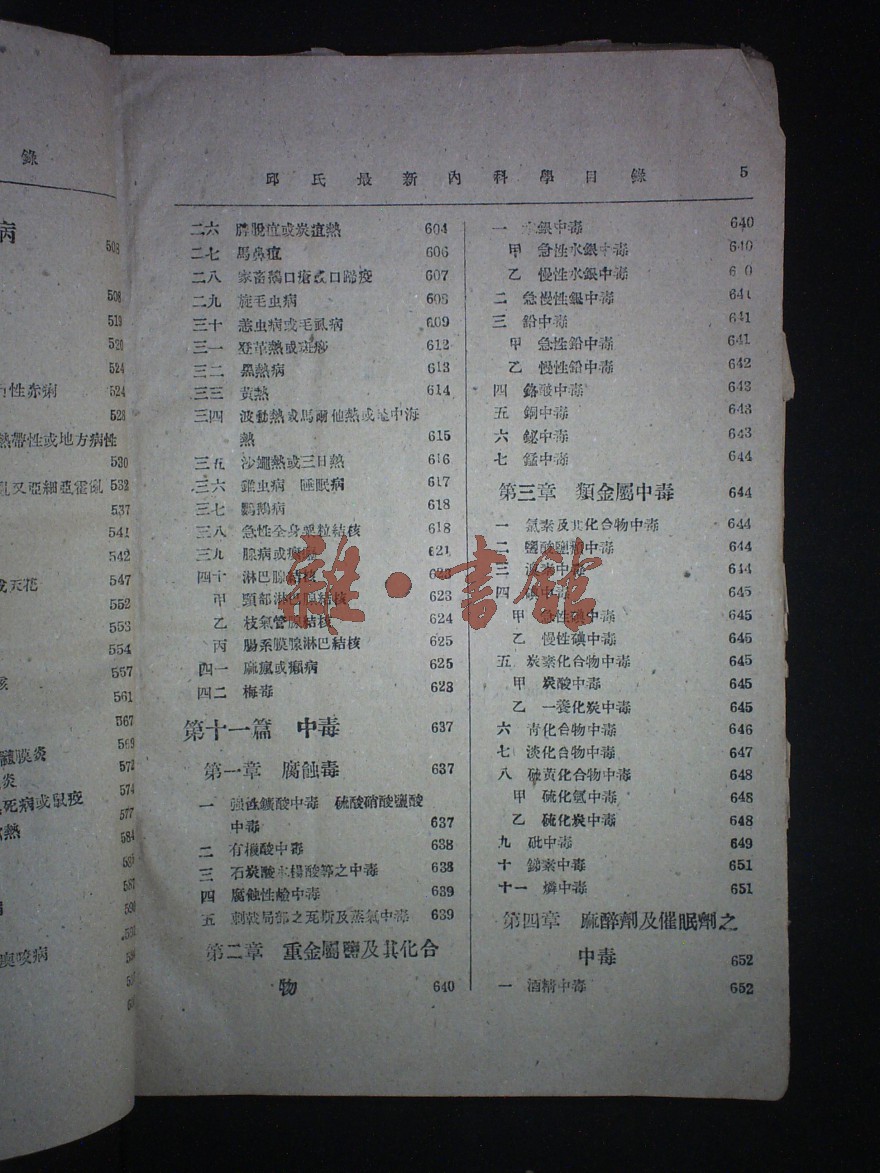 錄
病
508
508
519
520
524
性赤痢 524
528
熱帶性或地方病性
530
亂又亞細亞霍亂 532
537
541
542
547
天花
552
553
554
557
核
561
567
569
髓膜炎 572
炎 574
死病或鼠疫 577
熱 584
587
病
噢咬病
邱氏最新內科學目錄 5
二六 脾脫疽或炭疽熱 604
二七 馬鼻疽 606
二八 家畜鵝口瘡或口蹄疫 607
二九 旋毛虫病 608
三十 恙虫病或毛虱病 609
三一 登革熱或斑疹 612
三二 黑熱病 613
三三 黃熱 614
三四 波動熱或馬爾他熱或地中海
熱 615
三五 沙蠅熱或三日熱 616
三六 錐虫病 睡眠病 617
三七 鸚鵡病 618
三八 急性全身粟粒結核 618
三九 腺病或 621
四十 淋巴腺結核 623
甲 頸部淋巴腺結核 623
乙 枝氣管腺結核 624
丙 腸系膜腺淋巴結核 625
四一 麻瘋或癩病 625
四二 梅毒 628
第十一篇 中毒 637
第一章 腐蝕毒 637
一 強性鑛酸中毒 硫酸硝酸鹽酸
中毒 637
二 有機酸中毒 638
三 石炭酸水楊酸等之中毒 638
四 腐蝕性鹼中毒 639
五 刺戟局部之瓦斯及蒸氣中毒 639
第二章 重金屬鹽及其化合
物 640
一 水銀中毒 640
甲 急性水銀中毒 640
乙 慢性水銀中毒 640
二 急慢性銀中毒 641
三 鉛中毒 641
甲 急性鉛中毒 641
乙 慢性鉛中毒 642
四 鉻酸中毒 643
五 銅中毒 643
六 鉍中毒 643
七 錳中毒 644
第三章 類金屬中毒 644
一 氯素及其化合物中毒 644
二 鹽酸鹽類中毒 644
三 溴素中毒 644
四 碘中毒 645
甲 急性碘中毒 645
乙 慢性碘中毒 645
五 炭素化合物中毒 645
甲 炭酸中毒 645
乙 一養化炭中毒 645
六 青化合物中毒 646
七 淡化合物中毒 647
八 硫黃化合物中毒 648
甲 硫化氫中毒 648
乙 硫化炭中毒 648
九 砒中毒 649
十 銻素中毒 651
十一 燐中毒 651
第四章 麻醉劑及催眠劑之
中毒 652
一 酒精中毒 652
雜·書館